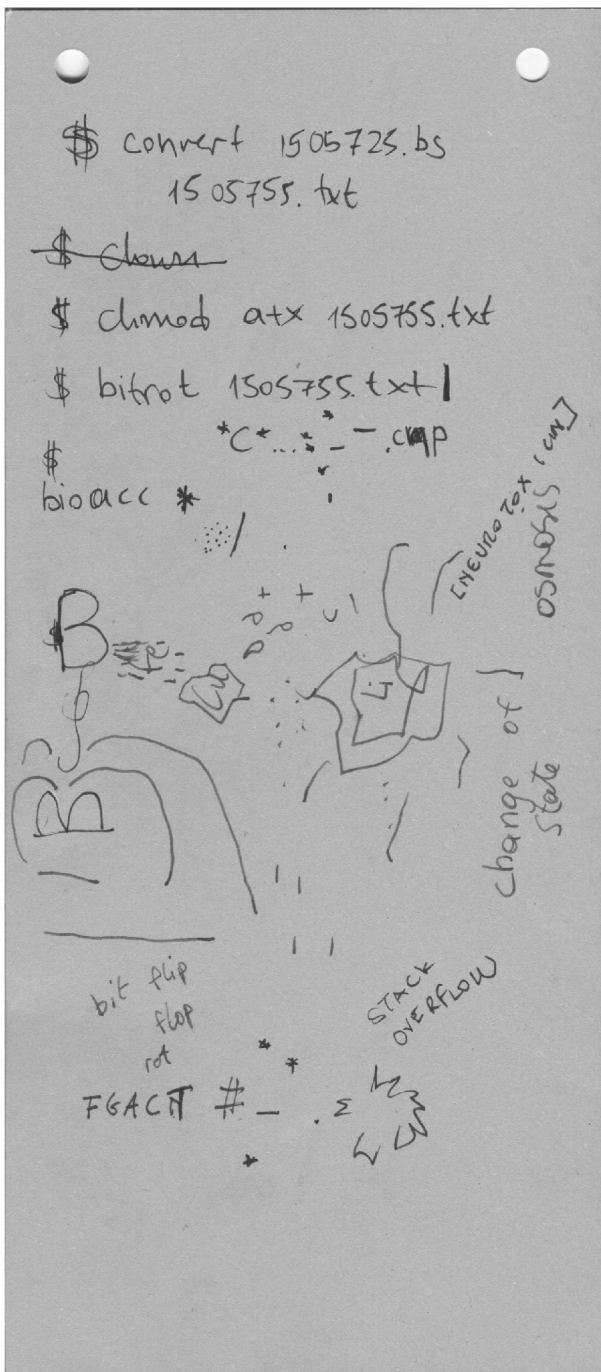 $ convert 1505725.bs
1505755.txt
$ chmod a+x 1505755.txt
$ bitrot 1505755.txt|
*C*...*_-.cmp
$
bioacc *
B
Cu
Li
B
[NEUROTOX
osmosis
change of
state
bit flip
flop
rot
STACK
OVERFLOW
FGACT #_ . Σ